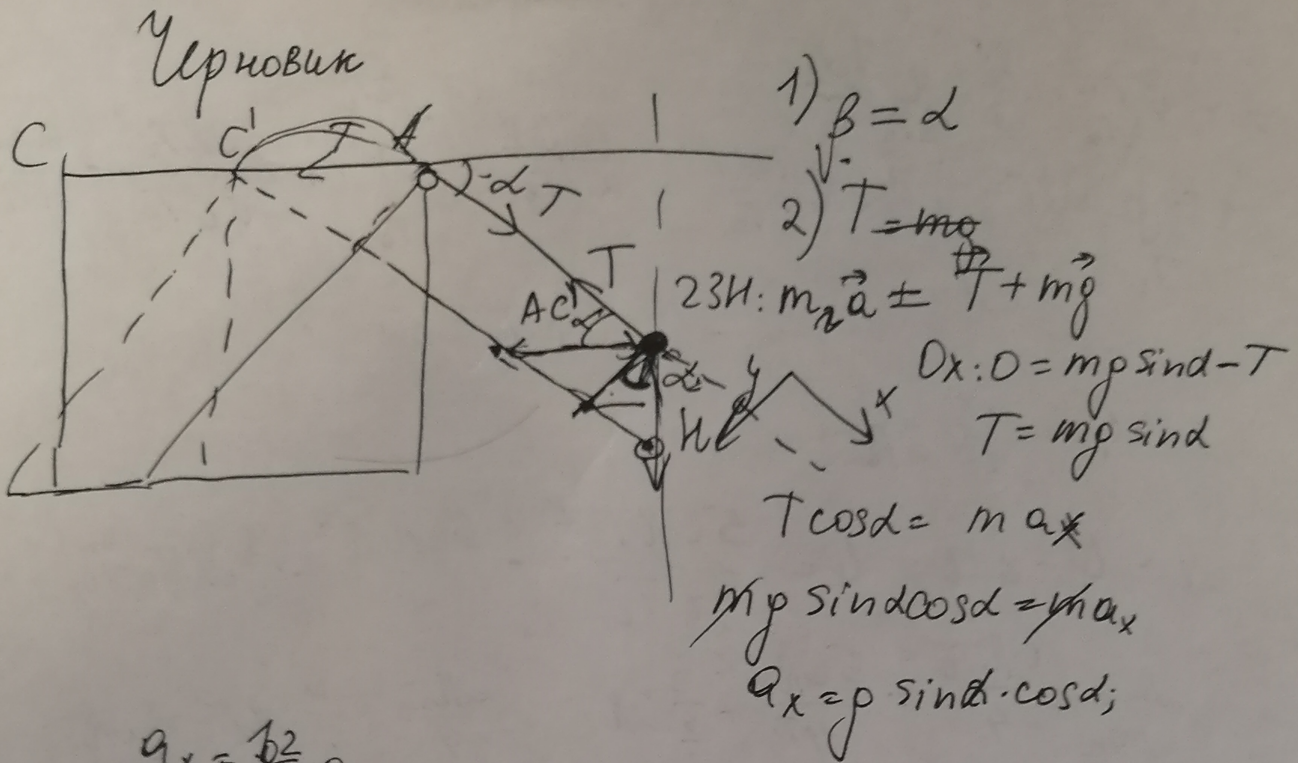 Черновик
C C' A
α T
T
AC' α
α
y x
H
1) β = α
2) T = mg
23Н: m₂a⃗ = T⃗ + mg⃗
Ox: 0 = mg sinα - T
T = mg sinα
T cosα = m aₓ
mg sinα cosα = m aₓ
aₓ = g sinα · cosα;